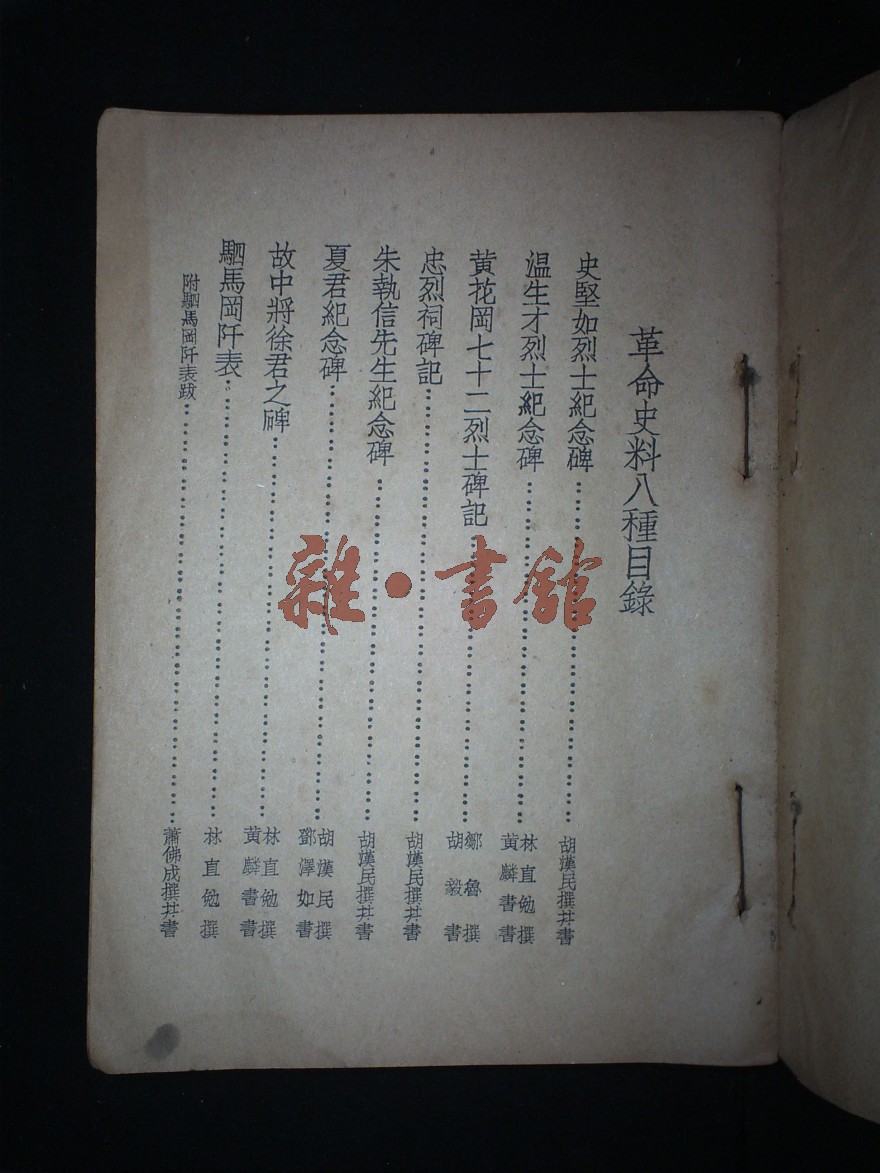 革命史料八種目錄
史堅如烈士紀念碑……胡漢民撰并書
温生才烈士紀念碑……林直勉撰 黃麟書書
黃花岡七十二烈士碑記……鄒魯撰 胡毅書
忠烈祠碑記……胡漢民撰并書
朱執信先生紀念碑……胡漢民撰并書
夏君紀念碑……胡漢民撰 鄧澤如書
故中將徐君之碑……林直勉撰 黃麟書書
駟馬岡阡表……林直勉撰
附駟馬岡阡表跋……蕭佛成撰并書
雜·書館